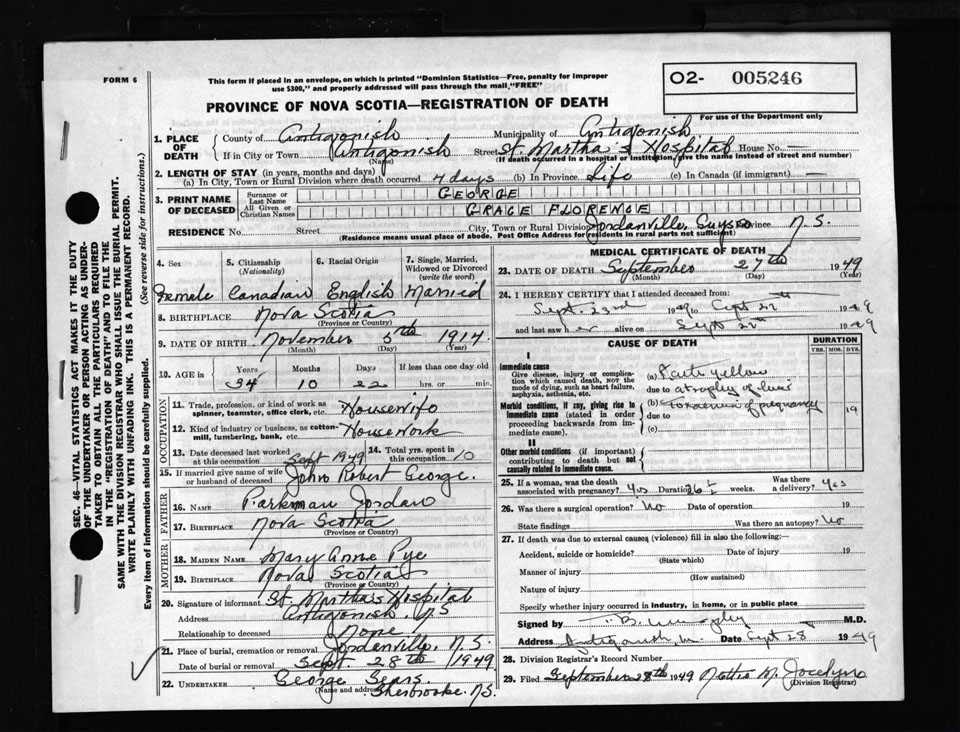 FORM 6
This form if placed in an envelope, on which is printed "Dominion Statistics—Free, penalty for improper
use $300," and properly addressed will pass through the mail, "FREE"
O2- 005246
For use of the Department only
PROVINCE OF NOVA SCOTIA—REGISTRATION OF DEATH
SEC. 46—VITAL STATISTICS ACT MAKES IT THE DUTY
OF THE UNDERTAKER OR PERSON ACTING AS UNDER-
TAKER TO OBTAIN ALL THE PARTICULARS REQUIRED
IN THE "REGISTRATION OF DEATH" AND TO FILE THE
SAME WITH THE DIVISION REGISTRAR WHO SHALL ISSUE THE BURIAL PERMIT.
WRITE PLAINLY WITH UNFADING INK. THIS IS A PERMANENT RECORD.
Every item of information should be carefully supplied. (See reverse side for instructions.)
1. PLACE OF DEATH
County of Antigonish Municipality of Antigonish
If in City or Town Antigonish Street St. Martha's Hospital House No. —
(Name) (If death occurred in a hospital or institution, give the name instead of street and number)
2. LENGTH OF STAY (in years, months and days)
(a) In City, Town or Rural Division where death occurred 4 days (b) In Province Life (c) In Canada (if immigrant) —
3. PRINT NAME OF DECEASED
Surname or Last Name GEORGE
All Given or Christian Names GRACE FLORENCE
RESIDENCE No. Street City, Town or Rural Division Jordanville, Guysco Province N.S.
(Residence means usual place of abode. Post Office Address for residents in rural parts not sufficient)
4. Sex Female
5. Citizenship (Nationality) Canadian
6. Racial Origin English
7. Single, Married, Widowed or Divorced (write the word) Married
8. BIRTHPLACE Nova Scotia
(Province or Country)
9. DATE OF BIRTH November 5th 1914
(Month) (Day) (Year)
10. AGE in Years Months Days If less than one day old
34 10 22 hrs. or min.
OCCUPATION
11. Trade, profession, or kind of work as
spinner, teamster, office clerk, etc. Housewife
12. Kind of industry or business, as cotton-
mill, lumbering, bank, etc. Housework
13. Date deceased last worked
at this occupation Sept 1949
14. Total yrs. spent in
this occupation 10
15. If married give name of wife
or husband of deceased John Robert George
FATHER
16. NAME Parkman Jordan
17. BIRTHPLACE Nova Scotia
(Province or Country)
MOTHER
18. MAIDEN NAME Mary Anne Pye
19. BIRTHPLACE Nova Scotia
(Province or Country)
20. Signature of informant St. Martha's Hospital
Address Antigonish, N.S
Relationship to deceased None
21. Place of burial, cremation or removal Jordanville, N.S.
Date of burial or removal Sept. 28th 1949
22. UNDERTAKER George Sears
(Name and address) Sherbrooke N.S.
MEDICAL CERTIFICATE OF DEATH
23. DATE OF DEATH September 27th 1949
(Month) (Day) (Year)
24. I HEREBY CERTIFY that I attended deceased from:
Sept. 23rd 1949 to Sept 27th 1949
and last saw her alive on Sept 27th 1949
CAUSE OF DEATH DURATION
YRS. MOS. DYS.
I
Immediate cause
Give disease, injury or complication which caused death, NOT the mode of dying, such as heart failure, asphyxia, asthenia, etc.
(a) Acute yellow
due to atrophy of liver
Morbid conditions, if any, giving rise to immediate cause (stated in order proceeding backwards from immediate cause).
(b) toxaemia of pregnancy 19
due to
(c)
II
Other morbid conditions (if important) contributing to death but not causally related to immediate cause.
25. If a woman, was the death
associated with pregnancy? Yes Duration 26 weeks. Was there
a delivery? Yes
26. Was there a surgical operation? No Date of operation 19
State findings Was there an autopsy? No
27. If death was due to external causes (violence) fill in also the following:—
Accident, suicide or homicide? Date of injury 19
(State which)
Manner of injury
(How sustained)
Nature of injury
Specify whether injury occurred in industry, in home, or in public place
Signed by M.D.
Address Antigonish Date Sept 28 1949
28. Division Registrar's Record Number
29. Filed September 28th 1949 Nettie M. Jocelyn
(Division Registrar)